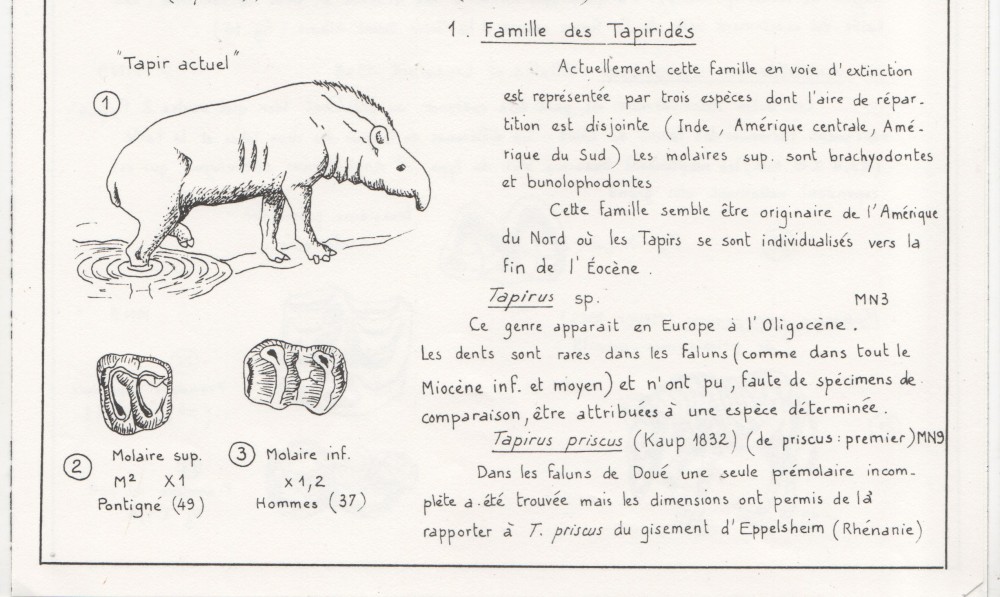 1. Famille des Tapiridés
"Tapir actuel"
1
Actuellement cette famille en voie d'extinction
est représentée par trois espèces dont l'aire de répar-
tition est disjointe (Inde, Amérique centrale, Amé-
rique du Sud) Les molaires sup. sont brachyodontes
et bunolophodontes
Cette famille semble être originaire de l'Amérique
du Nord où les Tapirs se sont individualisés vers la
fin de l'Éocène.
Tapirus sp. MN3
Ce genre apparait en Europe à l'Oligocène.
Les dents sont rares dans les faluns (comme dans tout le
Miocène inf. et moyen) et n'ont pu, faute de spécimens de
comparaison, être attribuées à une espèce déterminée.
Tapirus priscus (Kaup 1832) (de priscus: premier) MN9
Dans les faluns de Doué une seule prémolaire incom-
plète a été trouvée mais les dimensions ont permis de la
rapporter à T. priscus du gisement d'Eppelsheim (Rhénanie)
2 Molaire sup.
M² X1
Pontigné (49)
3 Molaire inf.
x 1,2
Hommes (37)